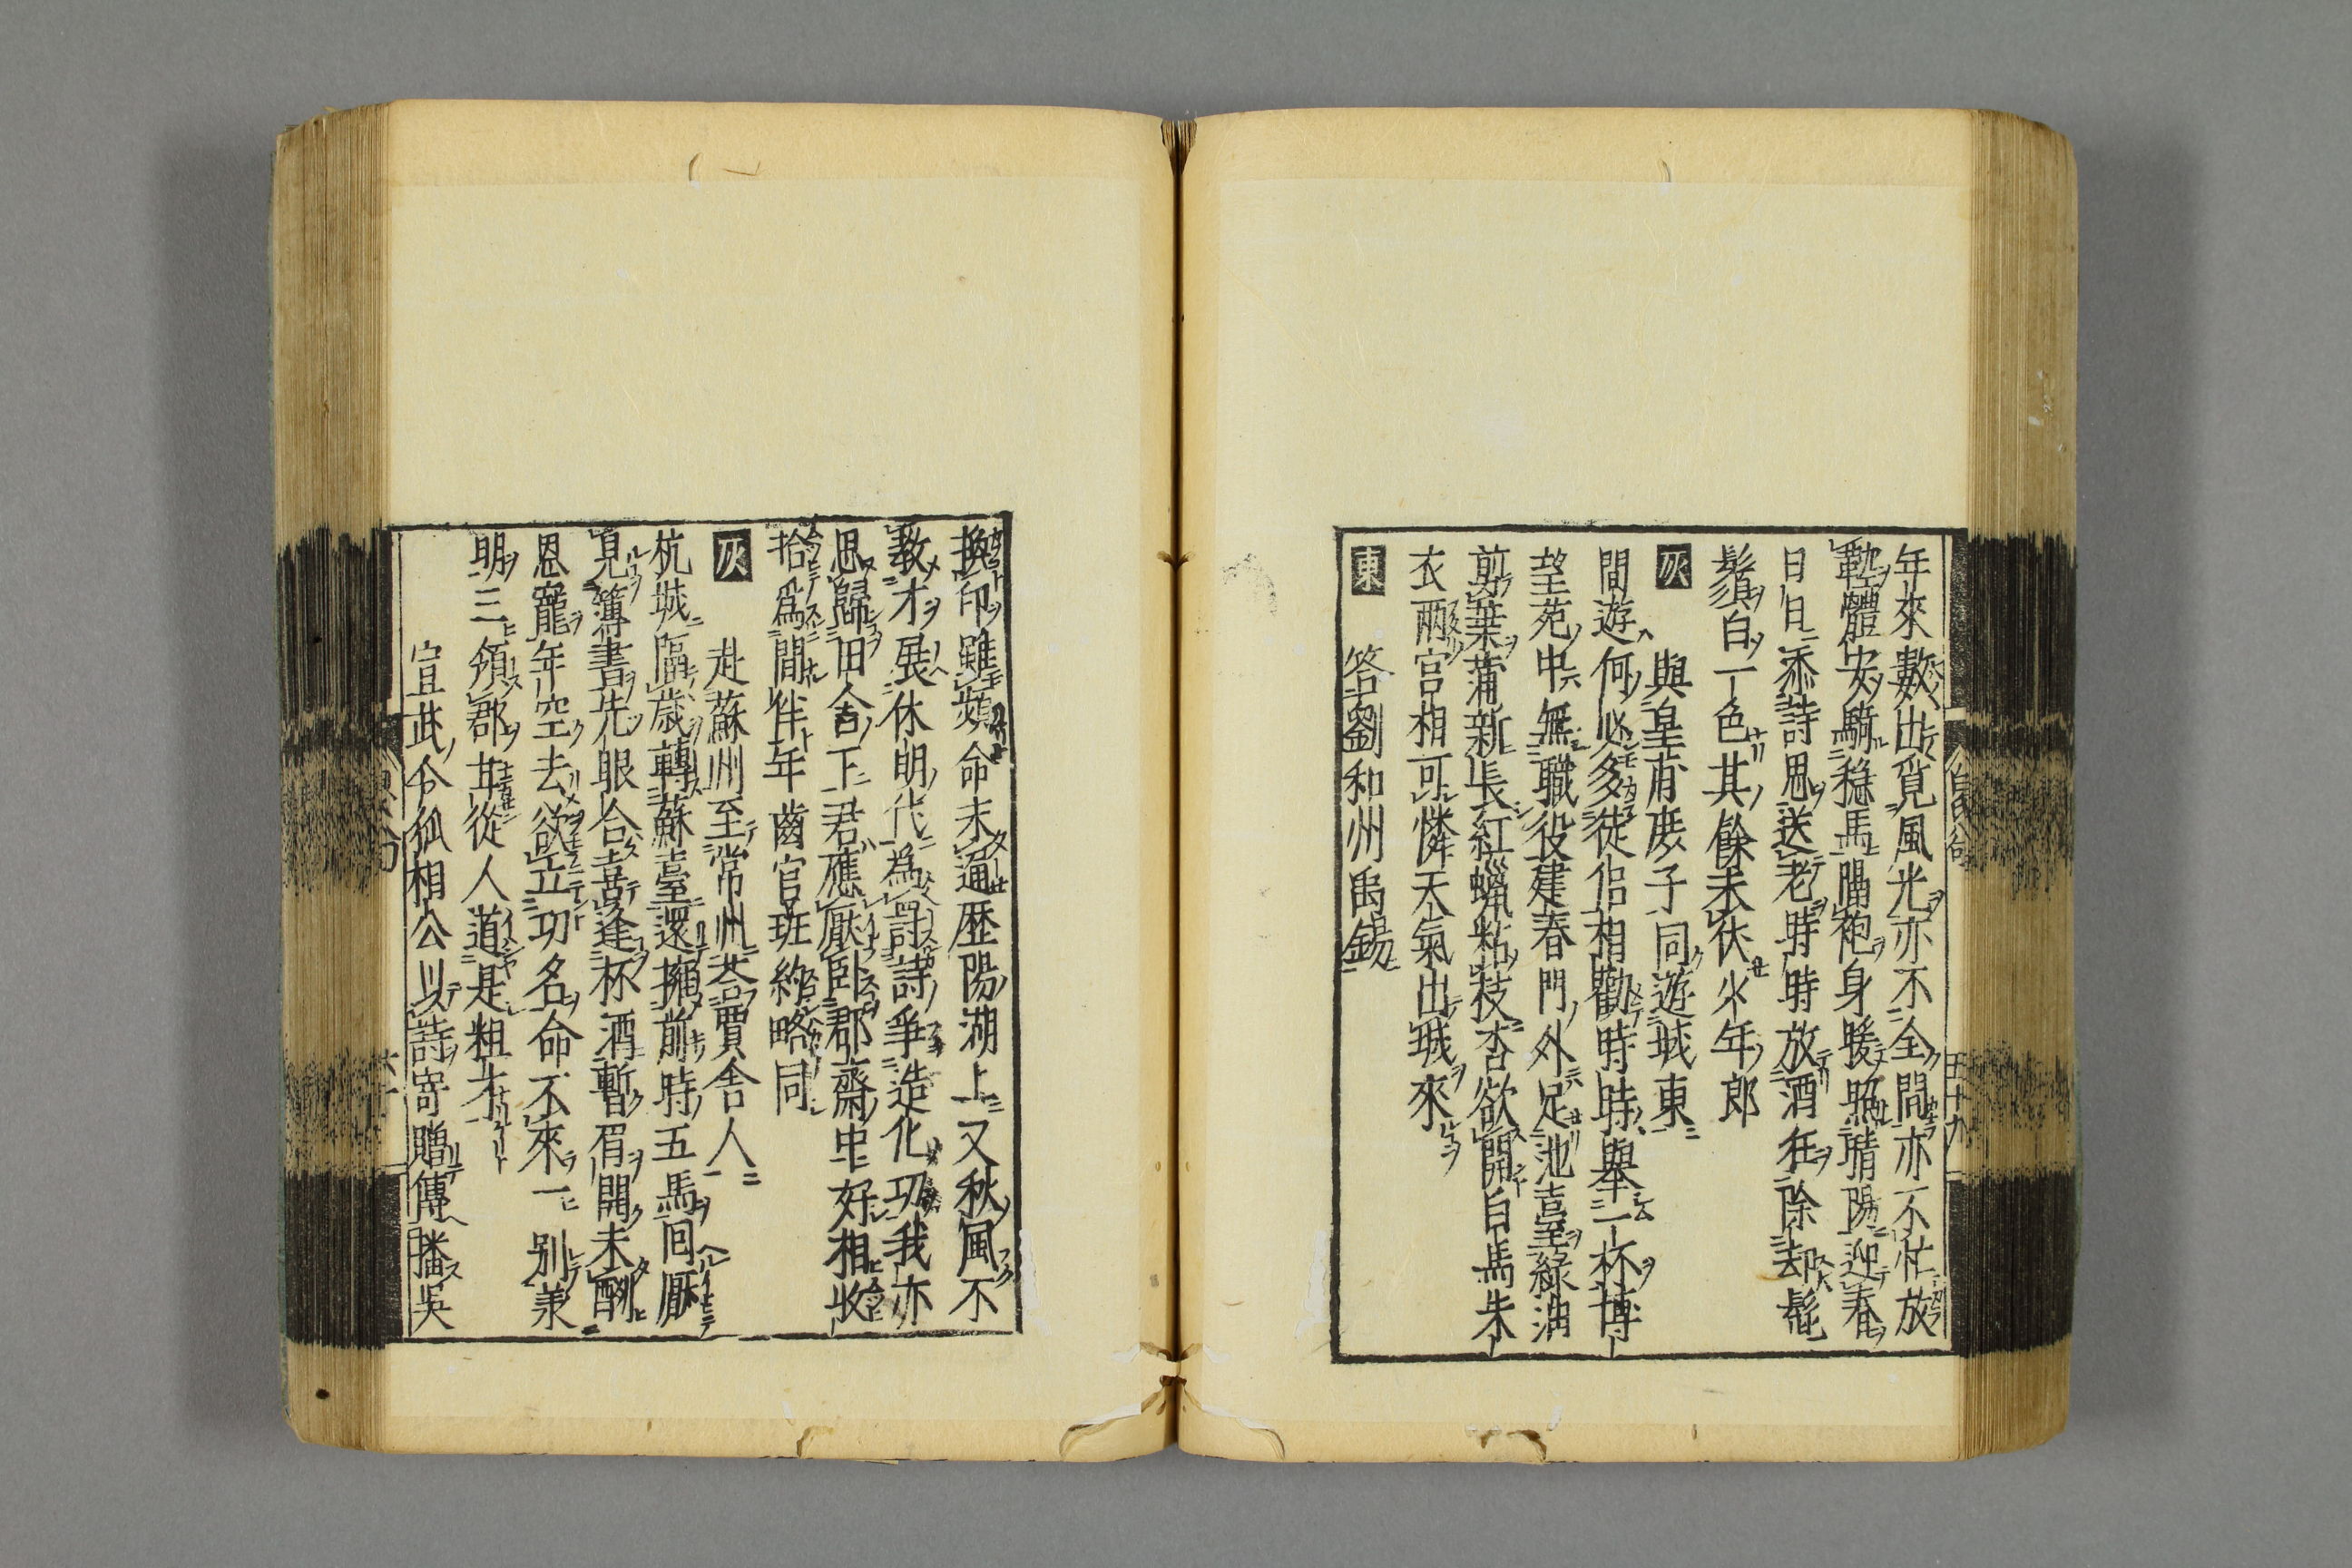 年來數出覓風光亦不全間亦不忙放
鞚體安騎穩馬隔袍身暖照晴陽迎春
日日添詩思送老時時放酒狂除却髭
鬚白一色其餘未伏少年郎
灰 與皇甫庻子同遊城東
間遊何必多徒侶相勸時時舉一杯博
望苑中無職役建春門外足池臺綠油
剪葉蒲新長紅蠟粘枝杏欲開白馬朱
衣兩宮相可憐天氣出城來
東 答劉和州禹錫
換印雖頻命未通歴陽湖上又秋風不
教才展休明代為罸詩爭造化功我亦
思歸旧舎下君應厭臥郡齋中好相收
拾爲間伴年齒官班約略同
灰 赴蘇州至常州荅賈舎人
杭城隔歲轉蘇臺還擁前時五馬囘厭
見簿書先眼合喜逢杯酒暫眉開未酬
恩寵年空去欲立功名命不來一別承
明三領郡甘從人道是粗才
宣武令狐相公以詩寄贈傳播吳